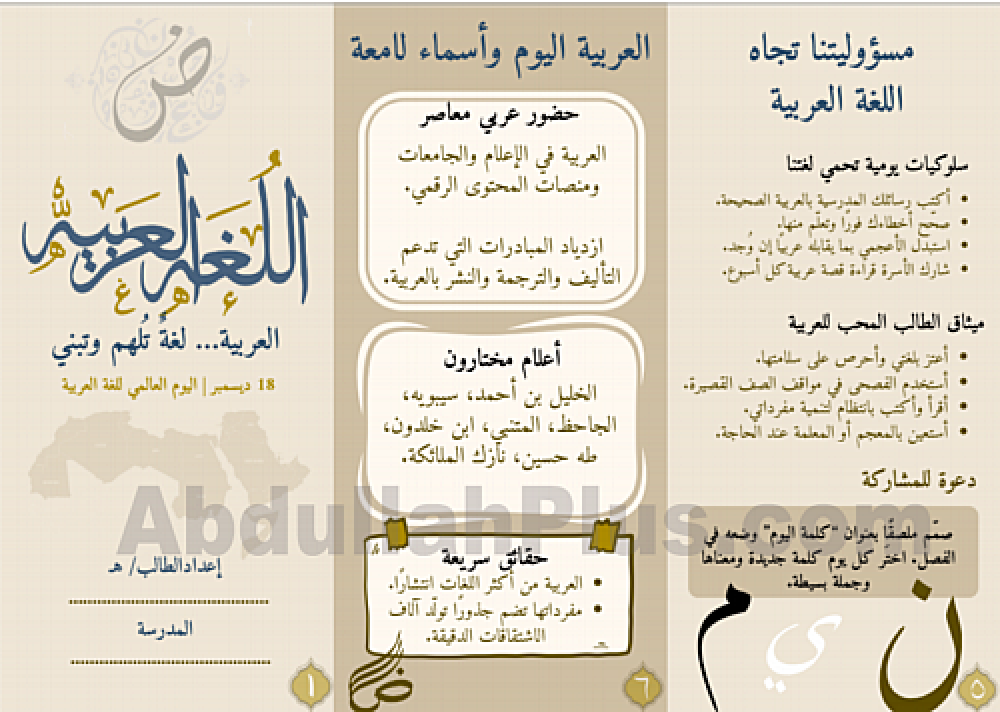 مسؤوليتنا تجاه
اللغة العربية
سلوكيات يومية تحمي لغتنا
• أكتب رسائلك المدرسية بالعربية الصحيحة.
• صحّح أخطاءك فورًا وتعلّم منها.
• استبدل الأعجمي بما يقابله عربيًا إن وُجد.
• شارك الأسرة قراءة قصة عربية كل أسبوع.
ميثاق الطالب المحب للعربية
• أعتز بلغتي وأحرص على سلامتها.
• أستخدم الفصحى في مواقف الصف القصيرة.
• أقرأ وأكتب بانتظام لتنمية مفرداتي.
• أستعين بالمعجم أو المعلمة عند الحاجة.
دعوة للمشاركة
صمّم ملصقًا بعنوان "كلمة اليوم" وضعه في
الفصل. اختر كل يوم كلمة جديدة ومعناها
وجملة بسيطة.
ن ي م
٥
العربية اليوم وأسماء لامعة
حضور عربي معاصر
العربية في الإعلام والجامعات
ومنصات المحتوى الرقمي.
ازدياد المبادرات التي تدعم
التأليف والترجمة والنشر بالعربية.
أعلام مختارون
الخليل بن أحمد، سيبويه،
الجاحظ، المتنبي، ابن خلدون،
طه حسين، نازك الملائكة.
حقائق سريعة
• العربية من أكثر اللغات انتشارًا.
• مفرداتها تضم جذورًا تولّد آلاف
الاشتقاقات الدقيقة.
ض
٦
ض
اللغة العربية
العربية... لغةٌ تُلهم وتبني
18 ديسمبر | اليوم العالمي للغة العربية
إعدادالطالب/ هـ
المدرسة
١
AbdullahPlus.com